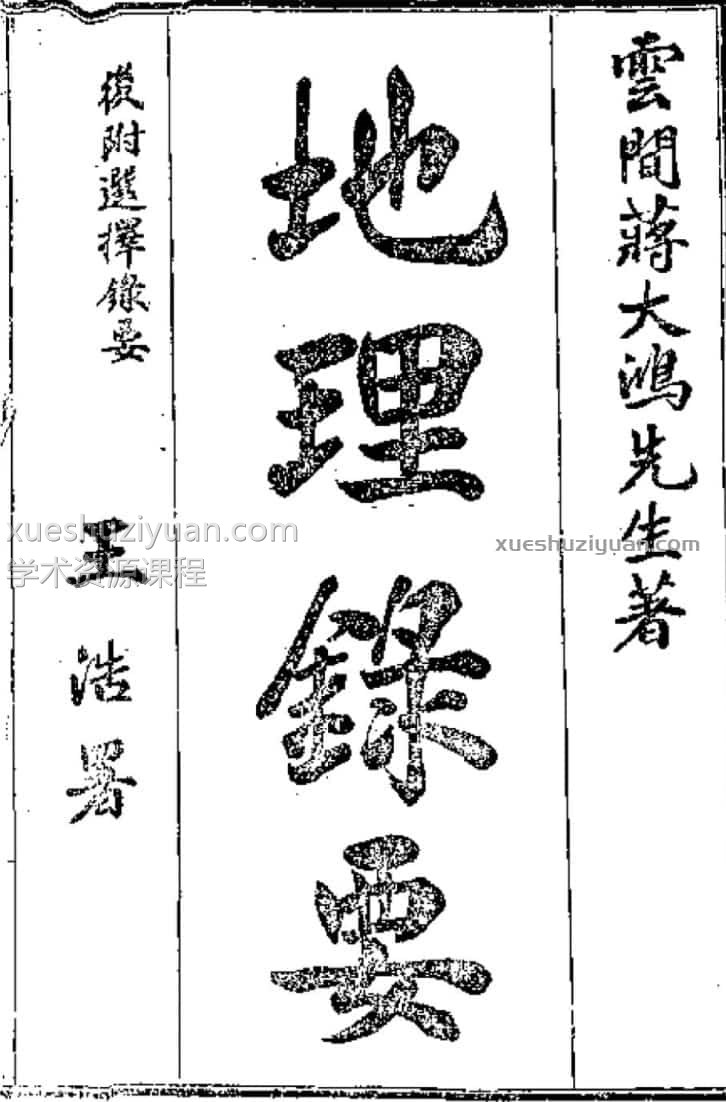 雲間蔣大鴻先生著
地理錄要
後附選擇錄要
王浩署
xueshuziyuan.com
学术资源课程
xueshuziyuan.com